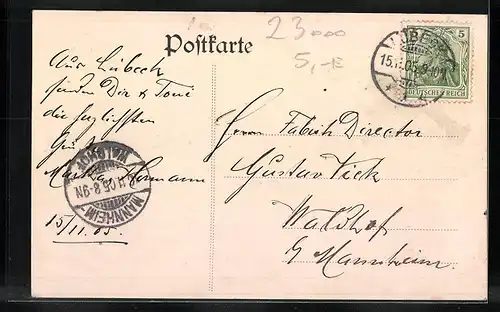 23000
5,-E
Postkarte
5
DEUTSCHES REICH
LÜBECK
15.11.05.8-10V
Aus Lübeck
senden Dir & Toni
die herzlichsten
Martha Hermann
15/11.05.
MANNHEIM
WALDHOF
11.05.8-9N
Herrn Fabrik Director
Gustav Vick
Waldhof
b/ Mannheim.